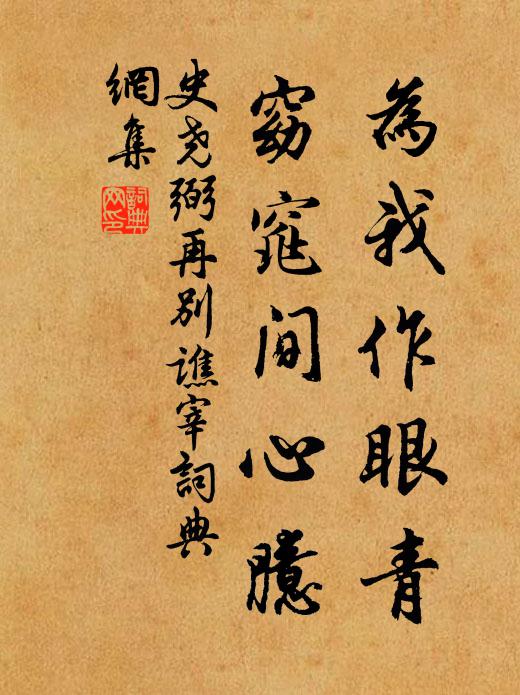 為我作眼青
窈窕間心臆
史尧弼再別譙宰詞典
網集
詞典
网印